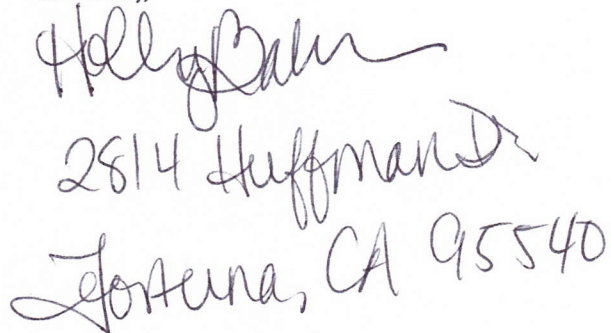 Holly
2814 Huffman Dr
Fortuna, CA 95540